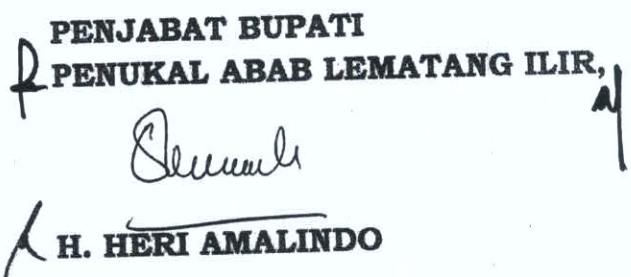 PENJABAT BUPATI
PENUKAL ABAB LEMATANG ILIR,
H. HERI AMALINDO